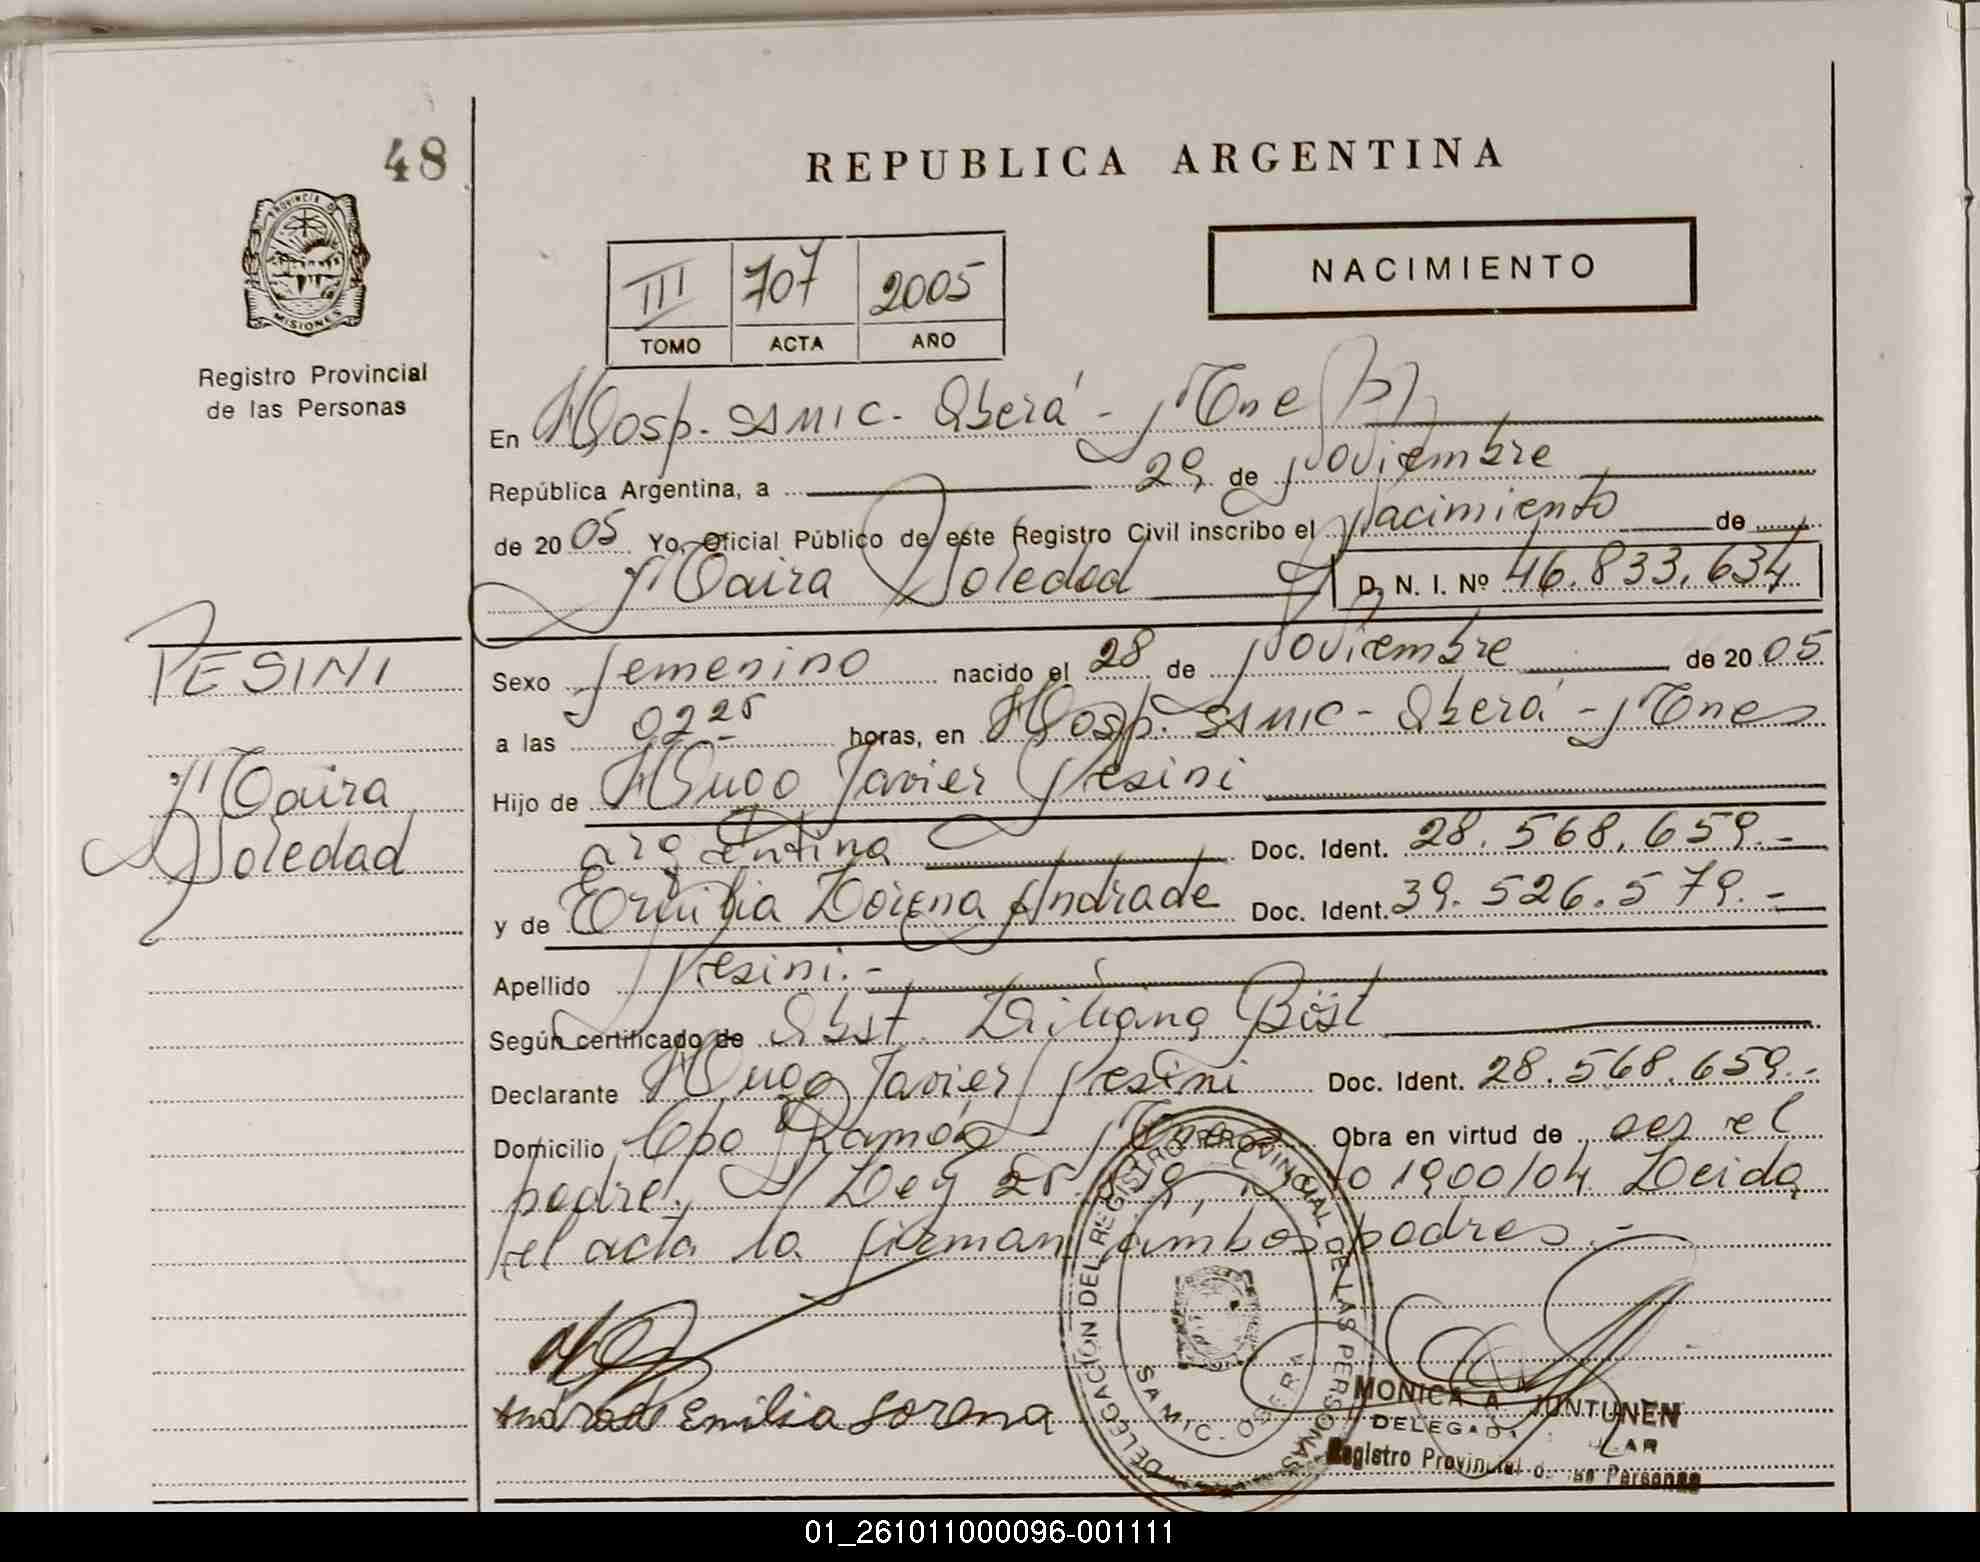 48
REPUBLICA ARGENTINA
PROVINCIA D
MISIONES
Registro Provincial
de las Personas
NACIMIENTO
III 707 2005
TOMO ACTA AÑO
En Hosp. SAMIC - Oberá - Mnes
República Argentina, a 29 de Noviembre
de 20 05 Yo, Oficial Público de este Registro Civil inscribo el Nacimiento de
Maira Soledad D. N. I. Nº 46.833.634
PESINI
Maira
Soledad
Sexo femenino nacido el 28 de Noviembre de 20 05
a las 02 25 horas, en Hosp. SAMIC - Oberá - Mnes
Hijo de Hugo Javier Pesini
argentina Doc. Ident. 28.568.659.-
y de Emilia Lorena Andrade Doc. Ident. 39.526.579.-
Apellido Pesini.-
Según certificado de Obst. Liliana Böst
Declarante Hugo Javier Pesini Doc. Ident. 28.568.659.-
Domicilio Cpo Ramón - Mnes Obra en virtud de ser el
padre. S/ Ley 25. 1900/04 Leida
el acta la firman ambos padres.-
Andrade Emilia Lorena
DELEGACION DEL REGISTRO PROVINCIAL DE LAS PERSONAS
SAMIC - OBERA
MONICA A. JUNTUNEN
DELEGADA
Registro Provincial de las Personas
01_261011000096-001111